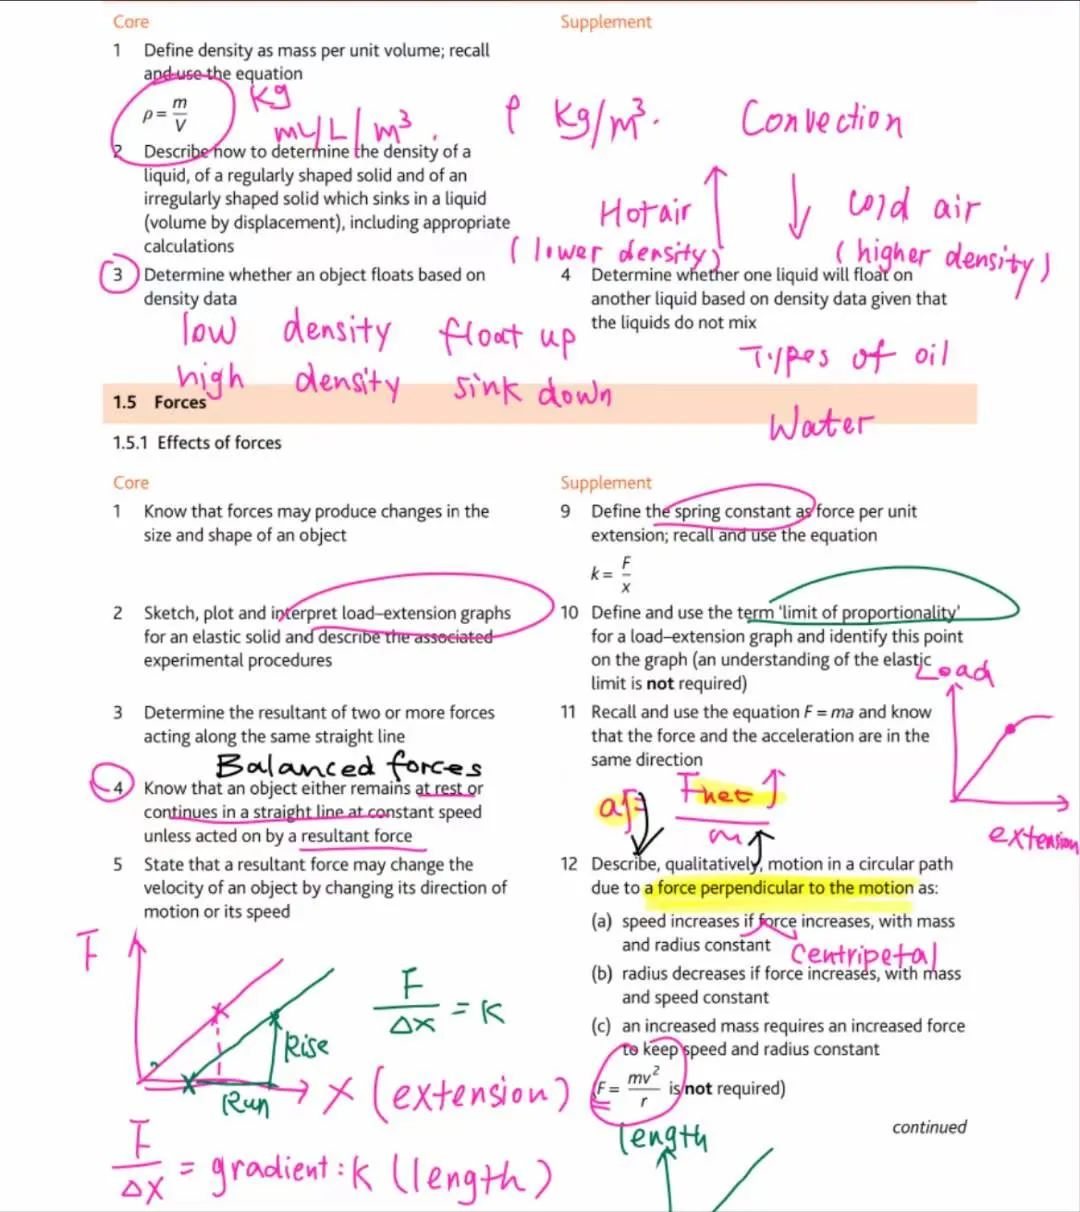 Core
Supplement
1 Define density as mass per unit volume; recall
and use the equation
ρ = m/V
Kg
mL/L/m³
ρ Kg/m³.
Convection
2 Describe how to determine the density of a
liquid, of a regularly shaped solid and of an
irregularly shaped solid which sinks in a liquid
(volume by displacement), including appropriate
calculations
Hot air
(lower density)
Cold air
(higher density)
3 Determine whether an object floats based on
density data
4 Determine whether one liquid will float on
another liquid based on density data given that
the liquids do not mix
low density float up
high density sink down
Types of oil
Water
1.5 Forces
1.5.1 Effects of forces
Core
Supplement
1 Know that forces may produce changes in the
size and shape of an object
9 Define the spring constant as force per unit
extension; recall and use the equation
k = F/x
2 Sketch, plot and interpret load–extension graphs
for an elastic solid and describe the associated
experimental procedures
10 Define and use the term 'limit of proportionality'
for a load–extension graph and identify this point
on the graph (an understanding of the elastic
limit is not required)
Load
extension
3 Determine the resultant of two or more forces
acting along the same straight line
11 Recall and use the equation F = ma and know
that the force and the acceleration are in the
same direction
Balanced forces
4 Know that an object either remains at rest or
continues in a straight line at constant speed
unless acted on by a resultant force
a = Fnet/m
5 State that a resultant force may change the
velocity of an object by changing its direction of
motion or its speed
12 Describe, qualitatively, motion in a circular path
due to a force perpendicular to the motion as:
(a) speed increases if force increases, with mass
and radius constant
Centripetal
(b) radius decreases if force increases, with mass
and speed constant
(c) an increased mass requires an increased force
to keep speed and radius constant
(F = mv²/r is not required)
continued
F
F/Δx = K
Rise
Run
X (extension)
F/ΔX = gradient: K (length)
length